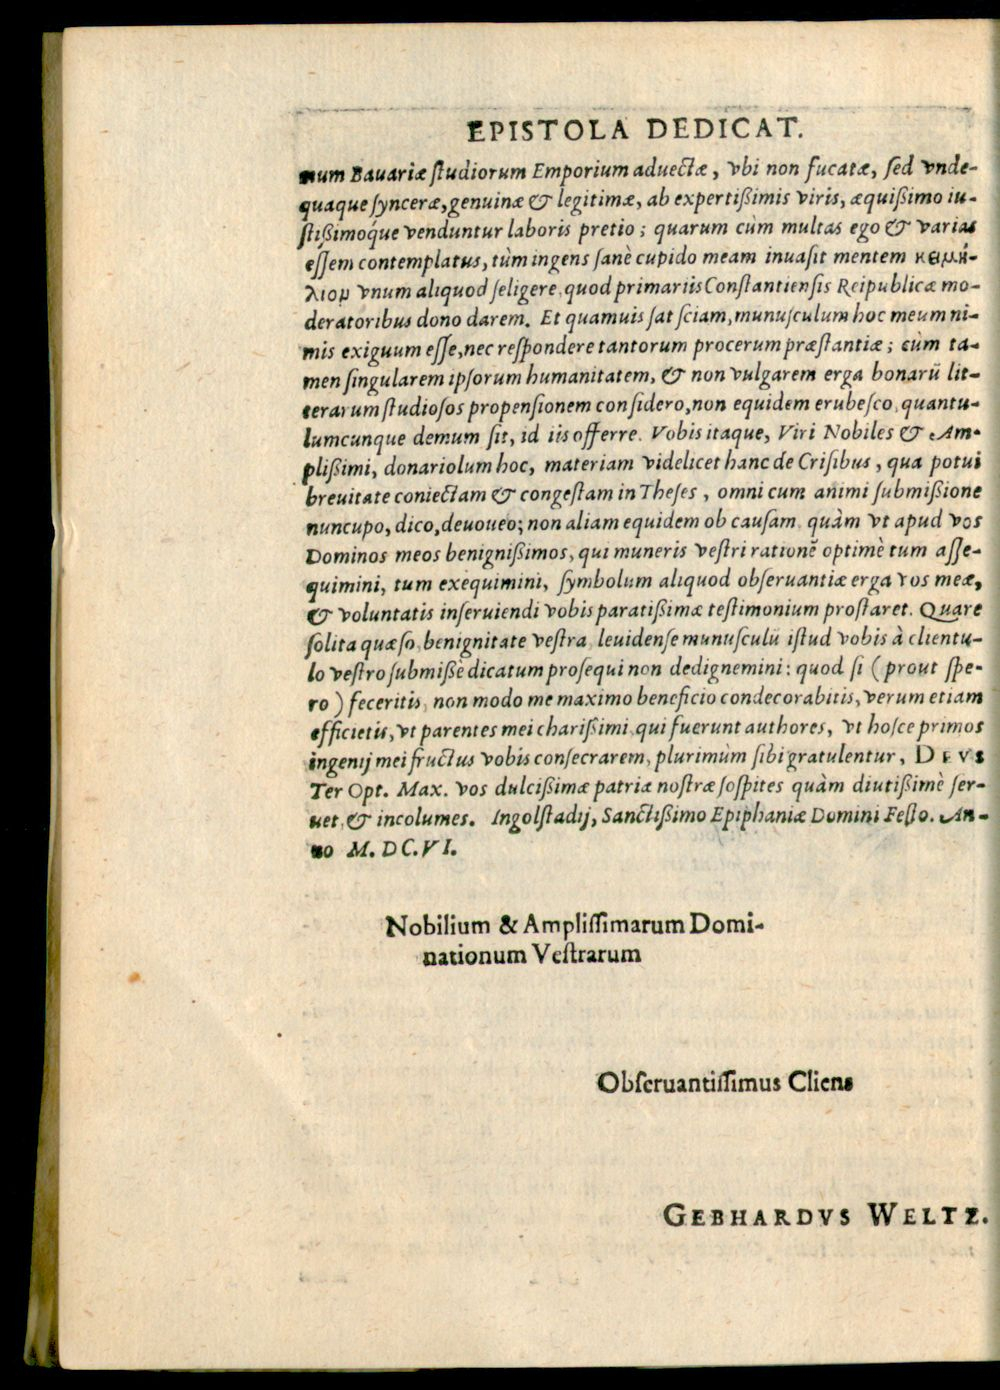 EPISTOLA DEDICAT.
num Bauariæ ſtudiorum Emporium aduectæ, vbi non fucatæ, ſed vnde-
quaque ſynceræ, genuinæ & legitimæ, ab expertißimis viris, æquißimo iu-
ſtißimoq́ue venduntur laboris pretio; quarum cùm multas ego & varias
eſſem contemplatus, tùm ingens ſanè cupido meam inuaſit mentem κειμή-
λιομ vnum aliquod ſeligere, quod primariis Conſtantienſis Reipublicæ mo-
deratoribus dono darem. Et quamuis ſat ſciam, munuſculum hoc meum ni-
mis exiguum eſſe, nec reſpondere tantorum procerum præſtantiæ; cùm ta-
men ſingularem ipſorum humanitatem, & non vulgarem erga bonarū lit-
terarum ſtudioſos propenſionem conſidero, non equidem erubeſco, quantu-
lumcunque demum ſit, id iis offerre. Vobis itaque, Viri Nobiles & Am-
plißimi, donariolum hoc, materiam videlicet hanc de Criſibus, qua potui
breuitate coniectam & congeſtam in Theſes, omni cum animi ſubmißione
nuncupo, dico, deuoueo; non aliam equidem ob cauſam, quàm vt apud vos
Dominos meos benignißimos, qui muneris veſtri rationē optimè tum aſſe-
quimini, tum exequimini, ſymbolum aliquod obſeruantiæ erga vos meæ,
& voluntatis inſeruiendi vobis paratißimæ teſtimonium proſtaret. Quare
ſolita quæſo, benignitate veſtra, leuidenſe munuſculū iſtud vobis à clientu-
lo veſtro ſubmißè dicatum proſequi non dedignemini: quod ſi (prout ſpe-
ro) feceritis, non modo me maximo beneficio condecorabitis, verum etiam
efficietis, vt parentes mei charißimi, qui fuerunt authores, vt hoſce primos
ingenij mei fructus vobis conſecrarem, plurimùm ſibi gratulentur, DEVS
Ter Opt. Max. vos dulcißimæ patriæ noſtræ ſoſpites quàm diutißimè ſer-
uet, & incolumes. Ingolſtadij, Sanctißimo Epiphaniæ Domini Feſto. An-
no M. DC. VI.
Nobilium & Ampliſſimarum Domi-
nationum Veſtrarum
Obſeruantiſſimus Cliens
GEBHARDVS WELTZ.